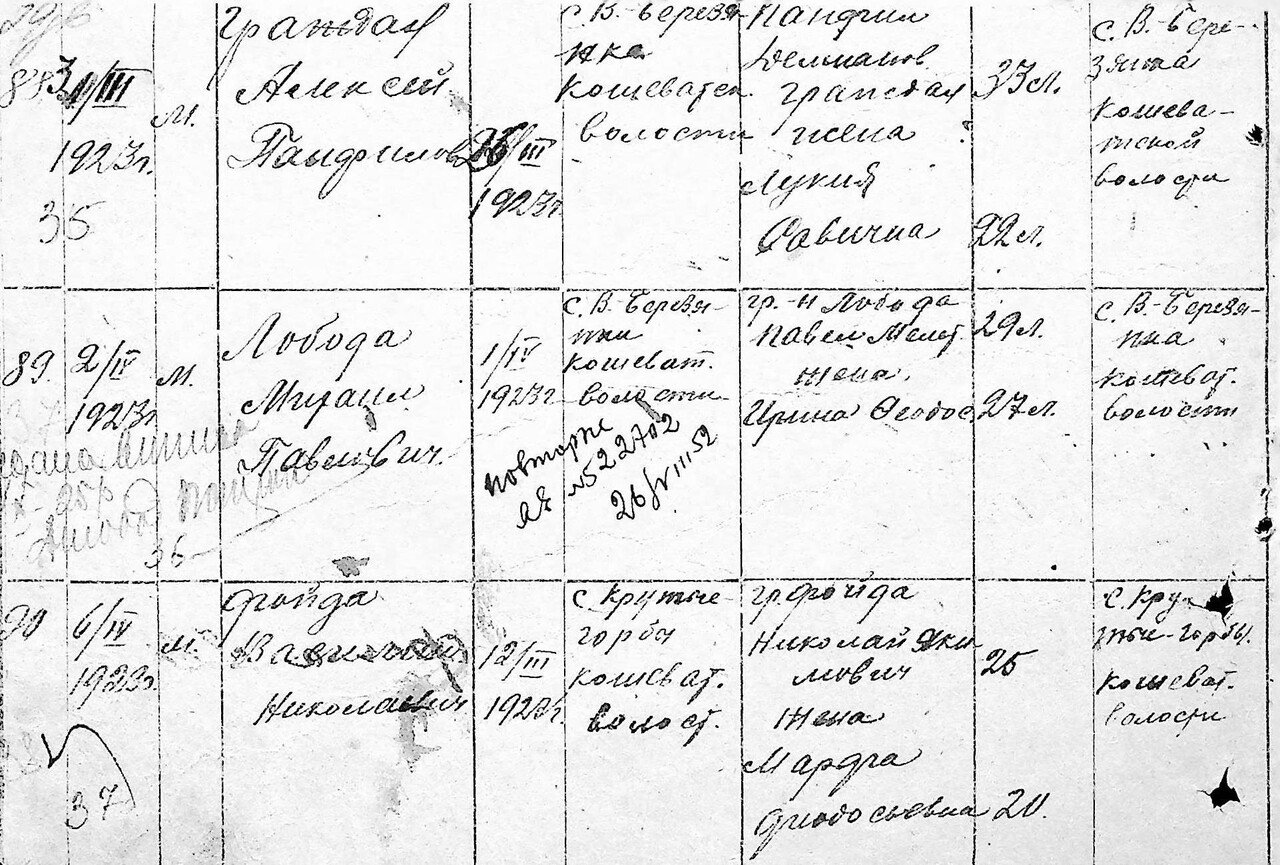 88
31/III
1923г.
36
м.
Грандах
Алексей
Панфилов
26/III
1923г.
с. В.-Березя-
нка
Кошеватск.
волости
Панфил
Демианов.
Грандах
жена
Лукия
Саввична
33 л.
22 л.
с. В.-Бере-
зянка
Кошева-
тской
волости
89.
2/IV
1923г.
м.
Лобода
Михаил
Павлович.
1/IV
1923г.
с. В.-Березян-
нки
Кошеват.
волости
гр.-н Лобода
Павел Мелет.
жена.
Ирина Феодос.
29 л.
27 л.
с. В.-Березя-
нка
Кошват.
волости
повторне
№522702
26/VIII 52
36
90
6/IV
1923г.
м.
Фойда
Василий
Николаевич
12/III
1923г.
с. Крутые-
горбы
Кошеват.
волост.
гр. Фойда
Николай Яки-
мович
жена
Марфа
Феодосьевна
25
20.
с. Кру-
тые-горбы.
Кошеват.
волости
37